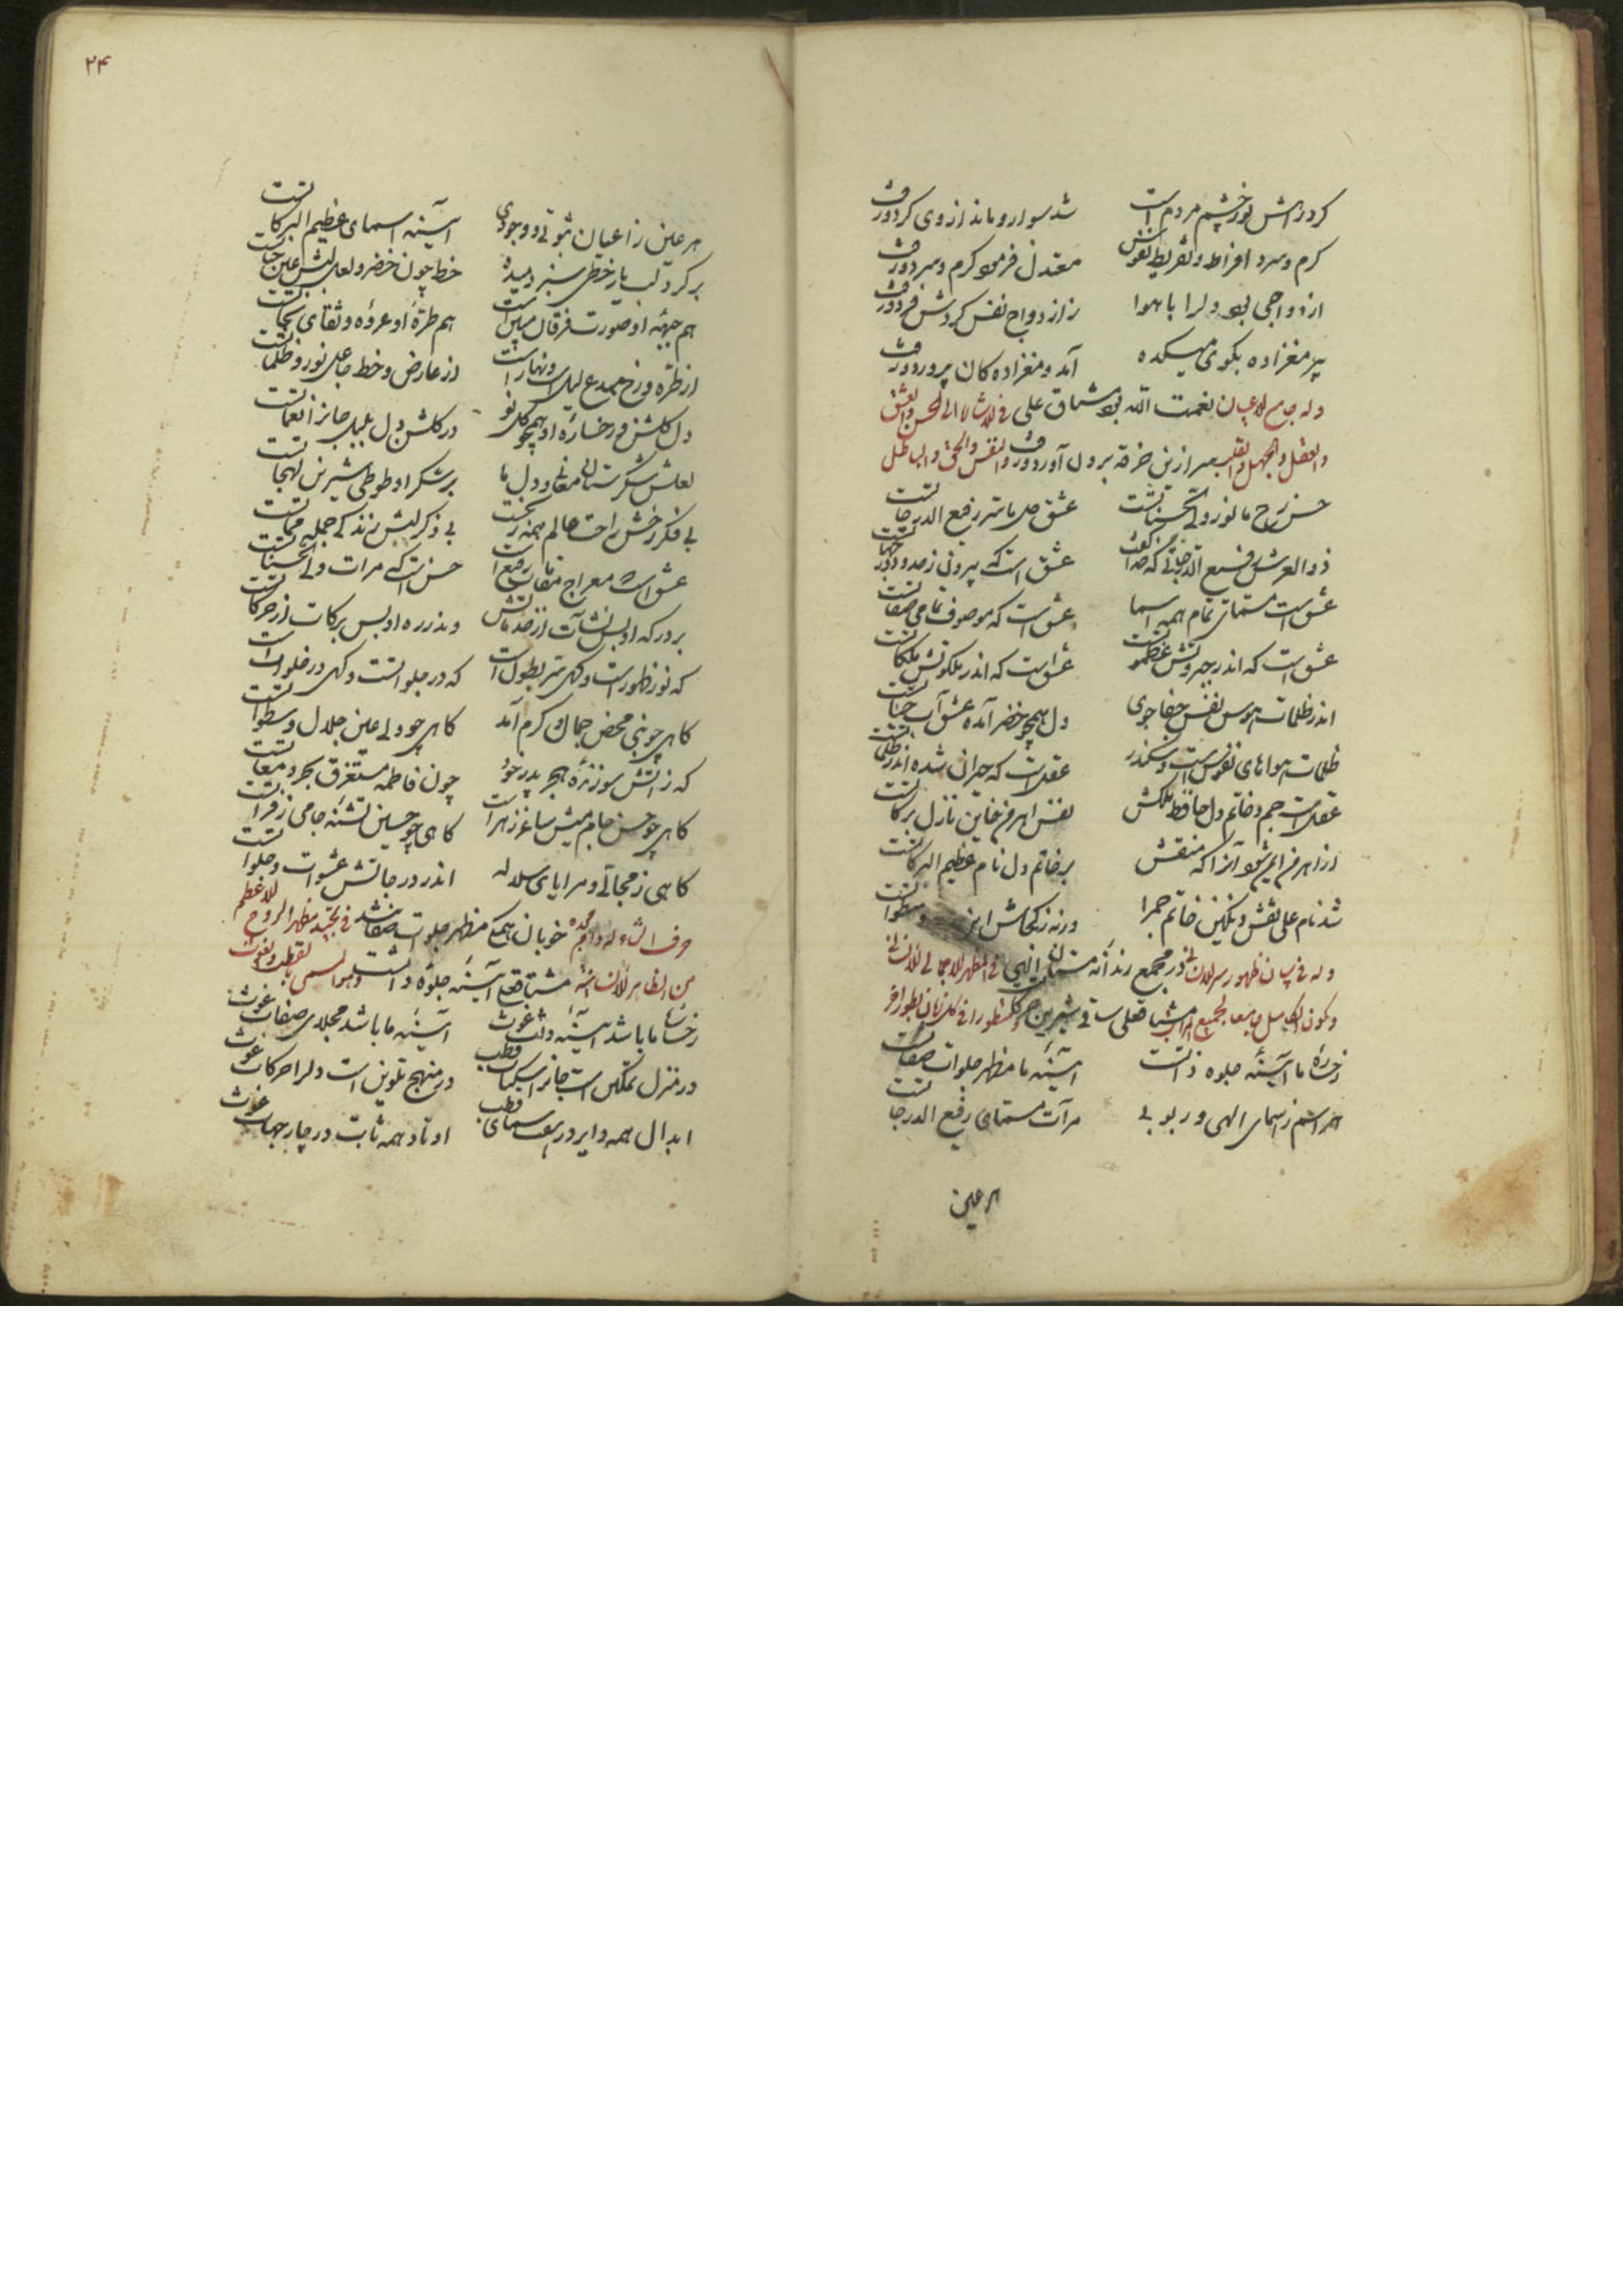 کرد راهش نور چشم مردم است شد سوار و ماند از وی کرد ورفت
گرم و سرد افراط و تفریط نفوس معتدل فرمود گرم و سرد ورفت
ازدواجی بود دلرا با هوا ز ازدواج نفس کردش فرد ورفت
پیر مغزاده بکوی میکده آمد و مغزاده کان پرورد ورفت
وله جامع الاعیان نعمت الله بود مشتاق علی فی الاشارة الی الحسن والعشق
والعقل والجهل والقلب سر ازین خرقه برون آورد ورفت والنفس والحق والباطل
حسن رخ ما نور ولی الحسناتست عشق دل ما سر رفیع الدرجاتست
ذوالعرش رفیع الدرجاتی که خدا گفت عشق است که بیرون ز حدود و ز جهاتست
عشق است مسمای تمام همه اسما عشق است که موصوف تمامی صفاتست
عشق است که اندر جبروتش عظموتست عشق است که اندر ملکوتش ملکاتست
اندر ظلمات هوس نفس جفا جوی دل همچو خضر آمده عشق آب حیاتست
ظلمات هواهای نفوس است و سکندر عقل است که حیران شده اندر ظلماتست
عقل است جم و خاتم دل حافظ ملکش نفس اهرمن خاین نازل برکاتست
از اهرمن ایمن شود آنرا که منقش بر خاتم دل نام عظیم البرکاتست
شد نام علی نقش و نگین خاتم جم را ورنه ز کجاش این سطواتست
وله فی بیان ظهور سر الانسانی در مجمع رندانه مستان الهی فی المظهر الاجمالی الانسانی
وکون الکامل جامعا لجمیع المراتب مشتاقعلی ساقی شیرین حرکتست
رخساره ما آینه جلوه ذاتست آئینه ما مظهر جلوات صفاتست
هر اسم ز اسمای الهی و ربوبی مرآت مسمای رفیع الدرجاتست
هر عین
۲۴
هر عین ز اعیان ثبوتی و وجودی آئینه اسمای عظیم البرکاتست
بر گرد لب یار خطی سبز دمیده خط چون خضر و لعل لبش عین حیاتست
هم جبهه او صورت فرقان مبین است هم طره او عروه وثقای نجاتست
از طره و رخ مبدع لیل است و نهار است از عارض و خط جاعل نور و ظلماتست
دل گلشن و رخساره او همچو گل نو در گلشن دل بلبل جانرا نغماتست
لعلش شکرستان معانی و دل ما بر شکر او طوطی شیرین لهجاتست
بی فکر رخش راحت عالم همه رنجست بی ذکر لبش زندگی جمله مماتست
عشق است معراج مقامات رفیع است حسن است که مرات ولی الحسناتست
بر درگه او بس نشآت از خدماتش وندر ره او بس برکات از حرکاتست
که نور ظهور است و گهی سر بطون است که در جلواتست و گهی در خلواتست
گاهی چو نبی محض جمال و کرم آمد گاهی چو ولی عین جلال و سطواتست
که ز آتش سوزنده هجر پدر خود چون فاطمه مستغرق بحر دمعاتست
گاهی چو حسن جام میش ساغر زهر است گاهی چو حسین تشنه جامی ز فراتست
گاهی ز مجالی و مرایای سلاله اندر درجاتش عشوات و جلواتست
حرف الثاء وله دام مجده خوبان همگی مظهر جلوات صفاتند فی تجدید مظهر الروح الاعظم
من الظاهر الانسانیة مشتاقعلی آینه جلوه ذاتست وهو المسمی بالقطب والغوث
رخسار ما باشد آئینه ذات غوث آئینه ما باشد مجلای صفات غوث
در منزل تمکین است جانرا سکنات قطب در منهج تلوین است دلرا حرکات غوث
ابدال همه دایر در هفت سمای قطب اوتاد همه ثابت در چار جهات غوث